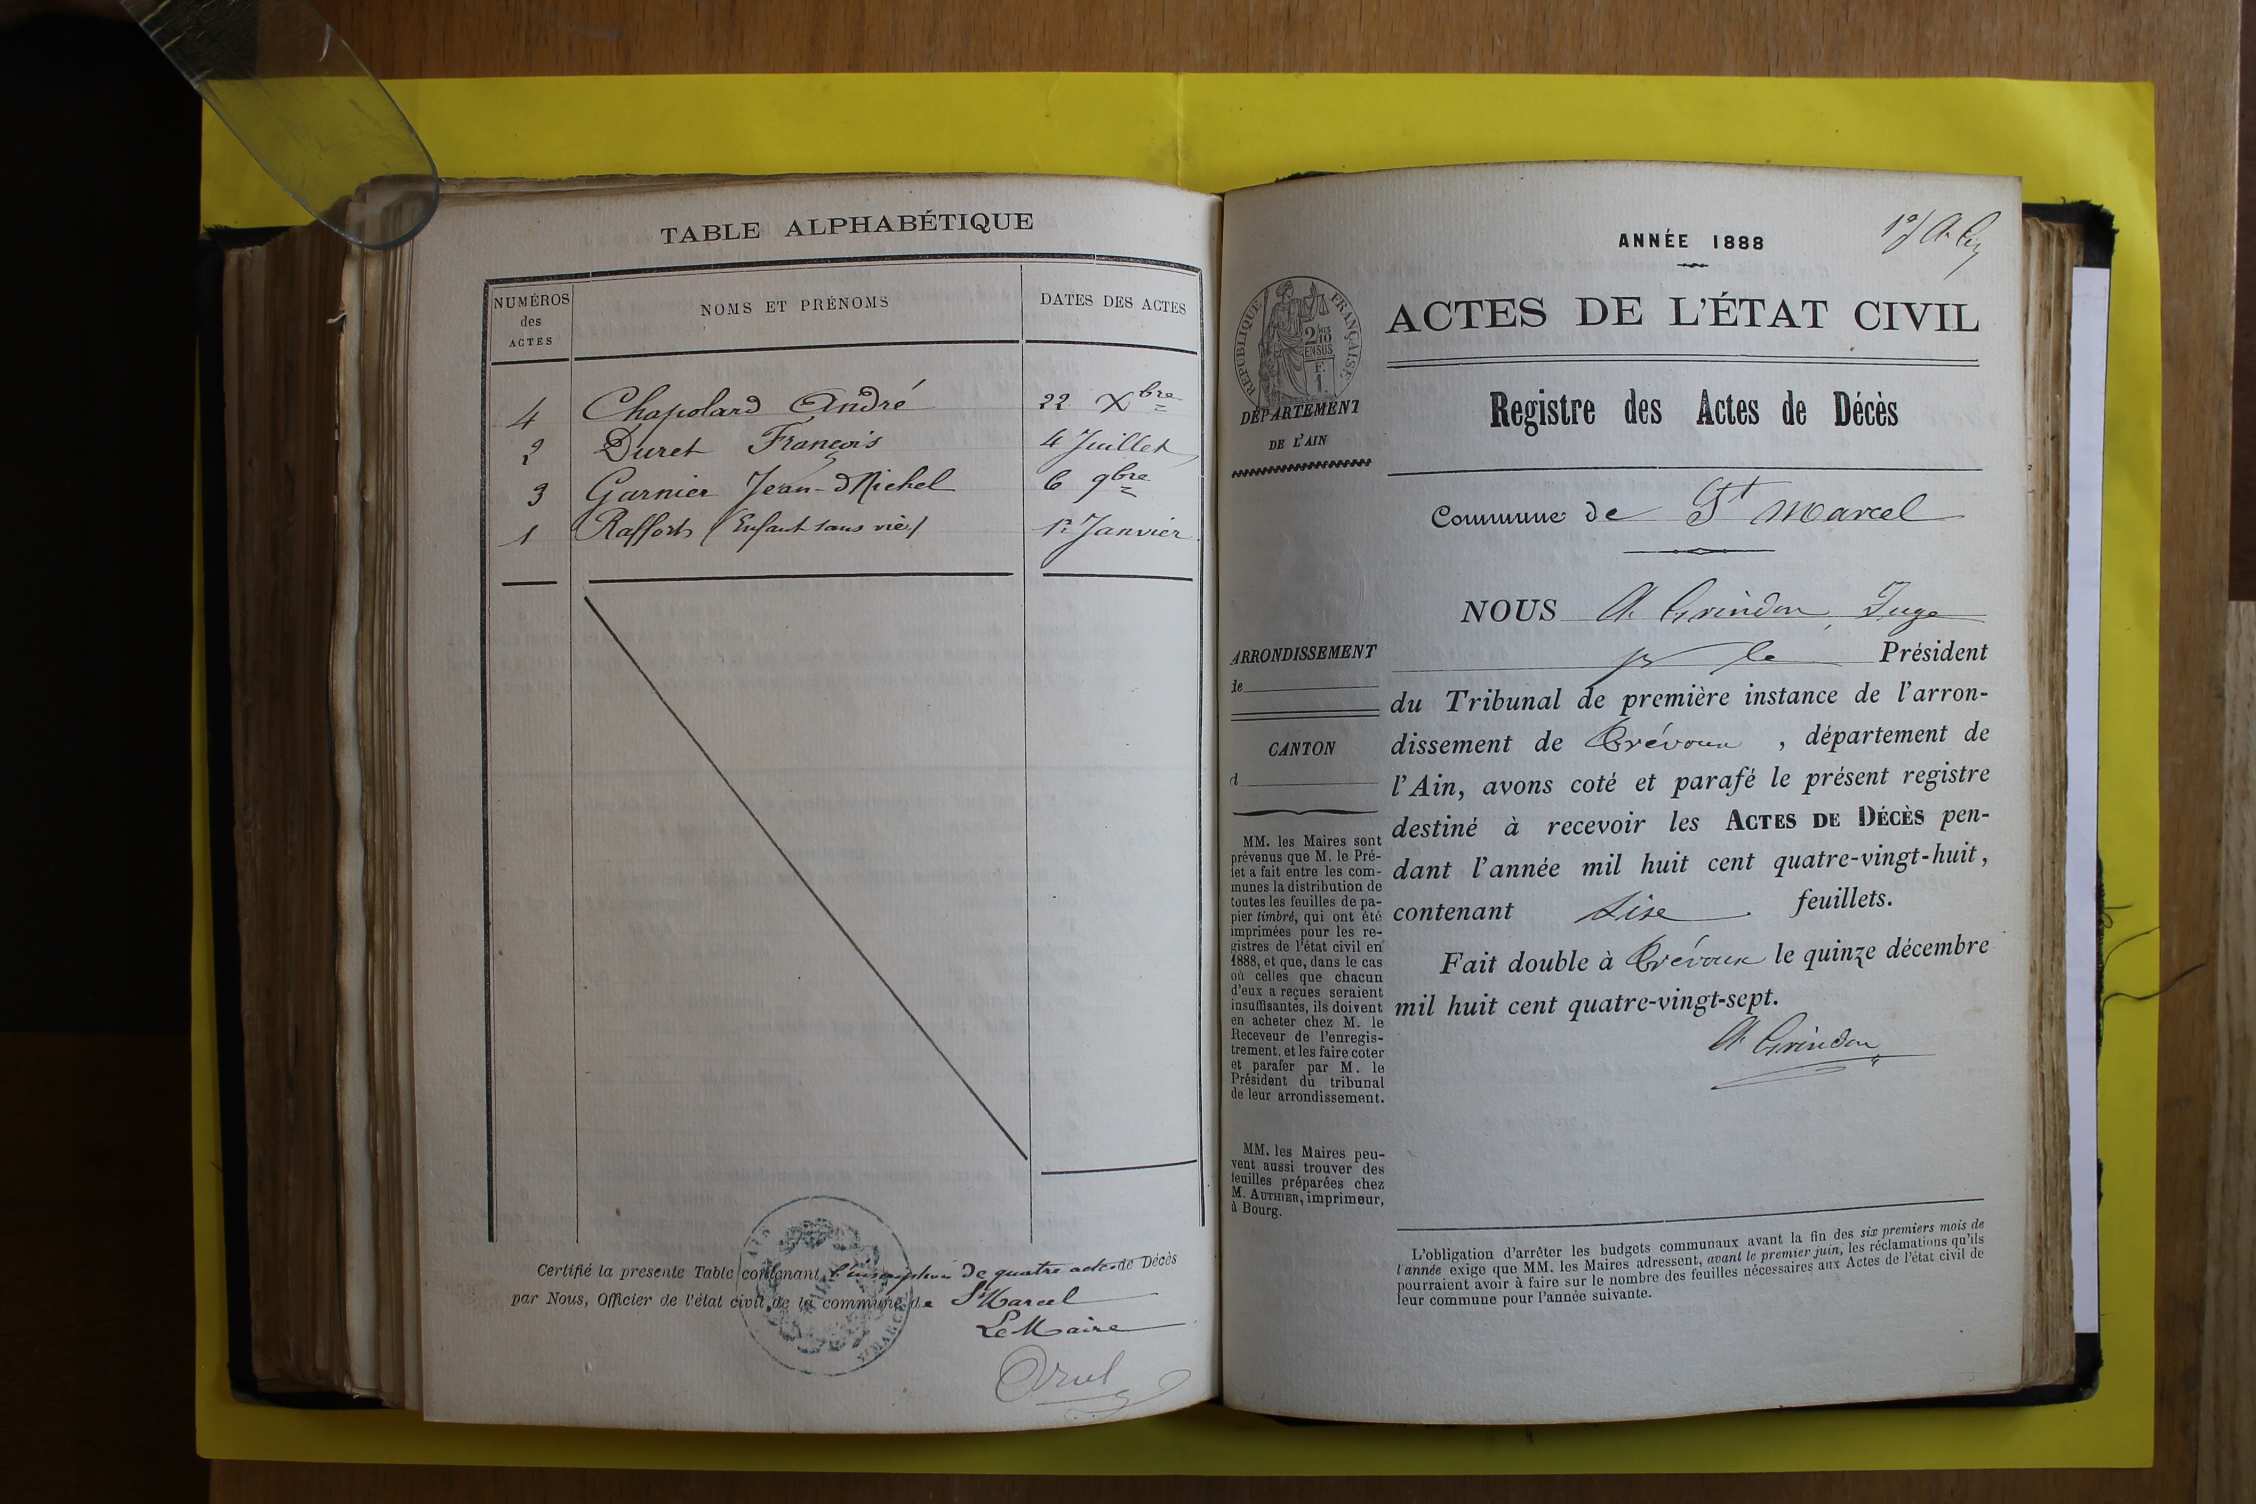 TABLE ALPHABÉTIQUE
NUMÉROS
des
ACTES
NOMS ET PRÉNOMS
DATES DES ACTES
4 Chapolard André 22 Xbre
2 Duret François 4 Juillet
3 Garnier Jean-Michel 6 9bre
1 Raffort (Enfant sans vie) 1er Janvier
Certifié la présente Table contenant l'inscription de quatre actes de Décès
par Nous, Officier de l'état civil de la commune de St Marcel
Le Maire
ANNÉE 1888
RÉPUBLIQUE FRANÇAISE
ACTES DE L'ÉTAT CIVIL
DÉPARTEMENT
DE L'AIN
Registre des Actes de Décès
Commune de St Marcel
NOUS A. Grindon, Juge
pr le Président
du Tribunal de première instance de l'arron-
dissement de Trévoux, département de
l'Ain, avons coté et parafé le présent registre
destiné à recevoir les ACTES DE DÉCÈS pen-
dant l'année mil huit cent quatre-vingt-huit,
contenant Sixe feuillets.
Fait double à Trévoux le quinze décembre
mil huit cent quatre-vingt-sept.
A. Grindon
ARRONDISSEMENT
de
CANTON
d
MM. les Maires sont
prévenus que M. le Pré-
fet a fait entre les com-
munes la distribution de
toutes les feuilles de pa-
pier timbré, qui ont été
imprimées pour les re-
gistres de l'état civil en
1888, et que, dans le cas
où celles que chacun
d'eux a reçues seraient
insuffisantes, ils doivent
en acheter chez M. le
Receveur de l'enregis-
trement, et les faire coter
et parafer par M. le
Président du tribunal
de leur arrondissement.
MM. les Maires peu-
vent aussi trouver des
feuilles préparées chez
M. AUTHIER, imprimeur,
à Bourg.
L'obligation d'arrêter les budgets communaux avant la fin des six premiers mois de
l'année exige que MM. les Maires adressent, avant le premier juin, les réclamations qu'ils
pourraient avoir à faire sur le nombre des feuilles nécessaires aux Actes de l'état civil de
leur commune pour l'année suivante.